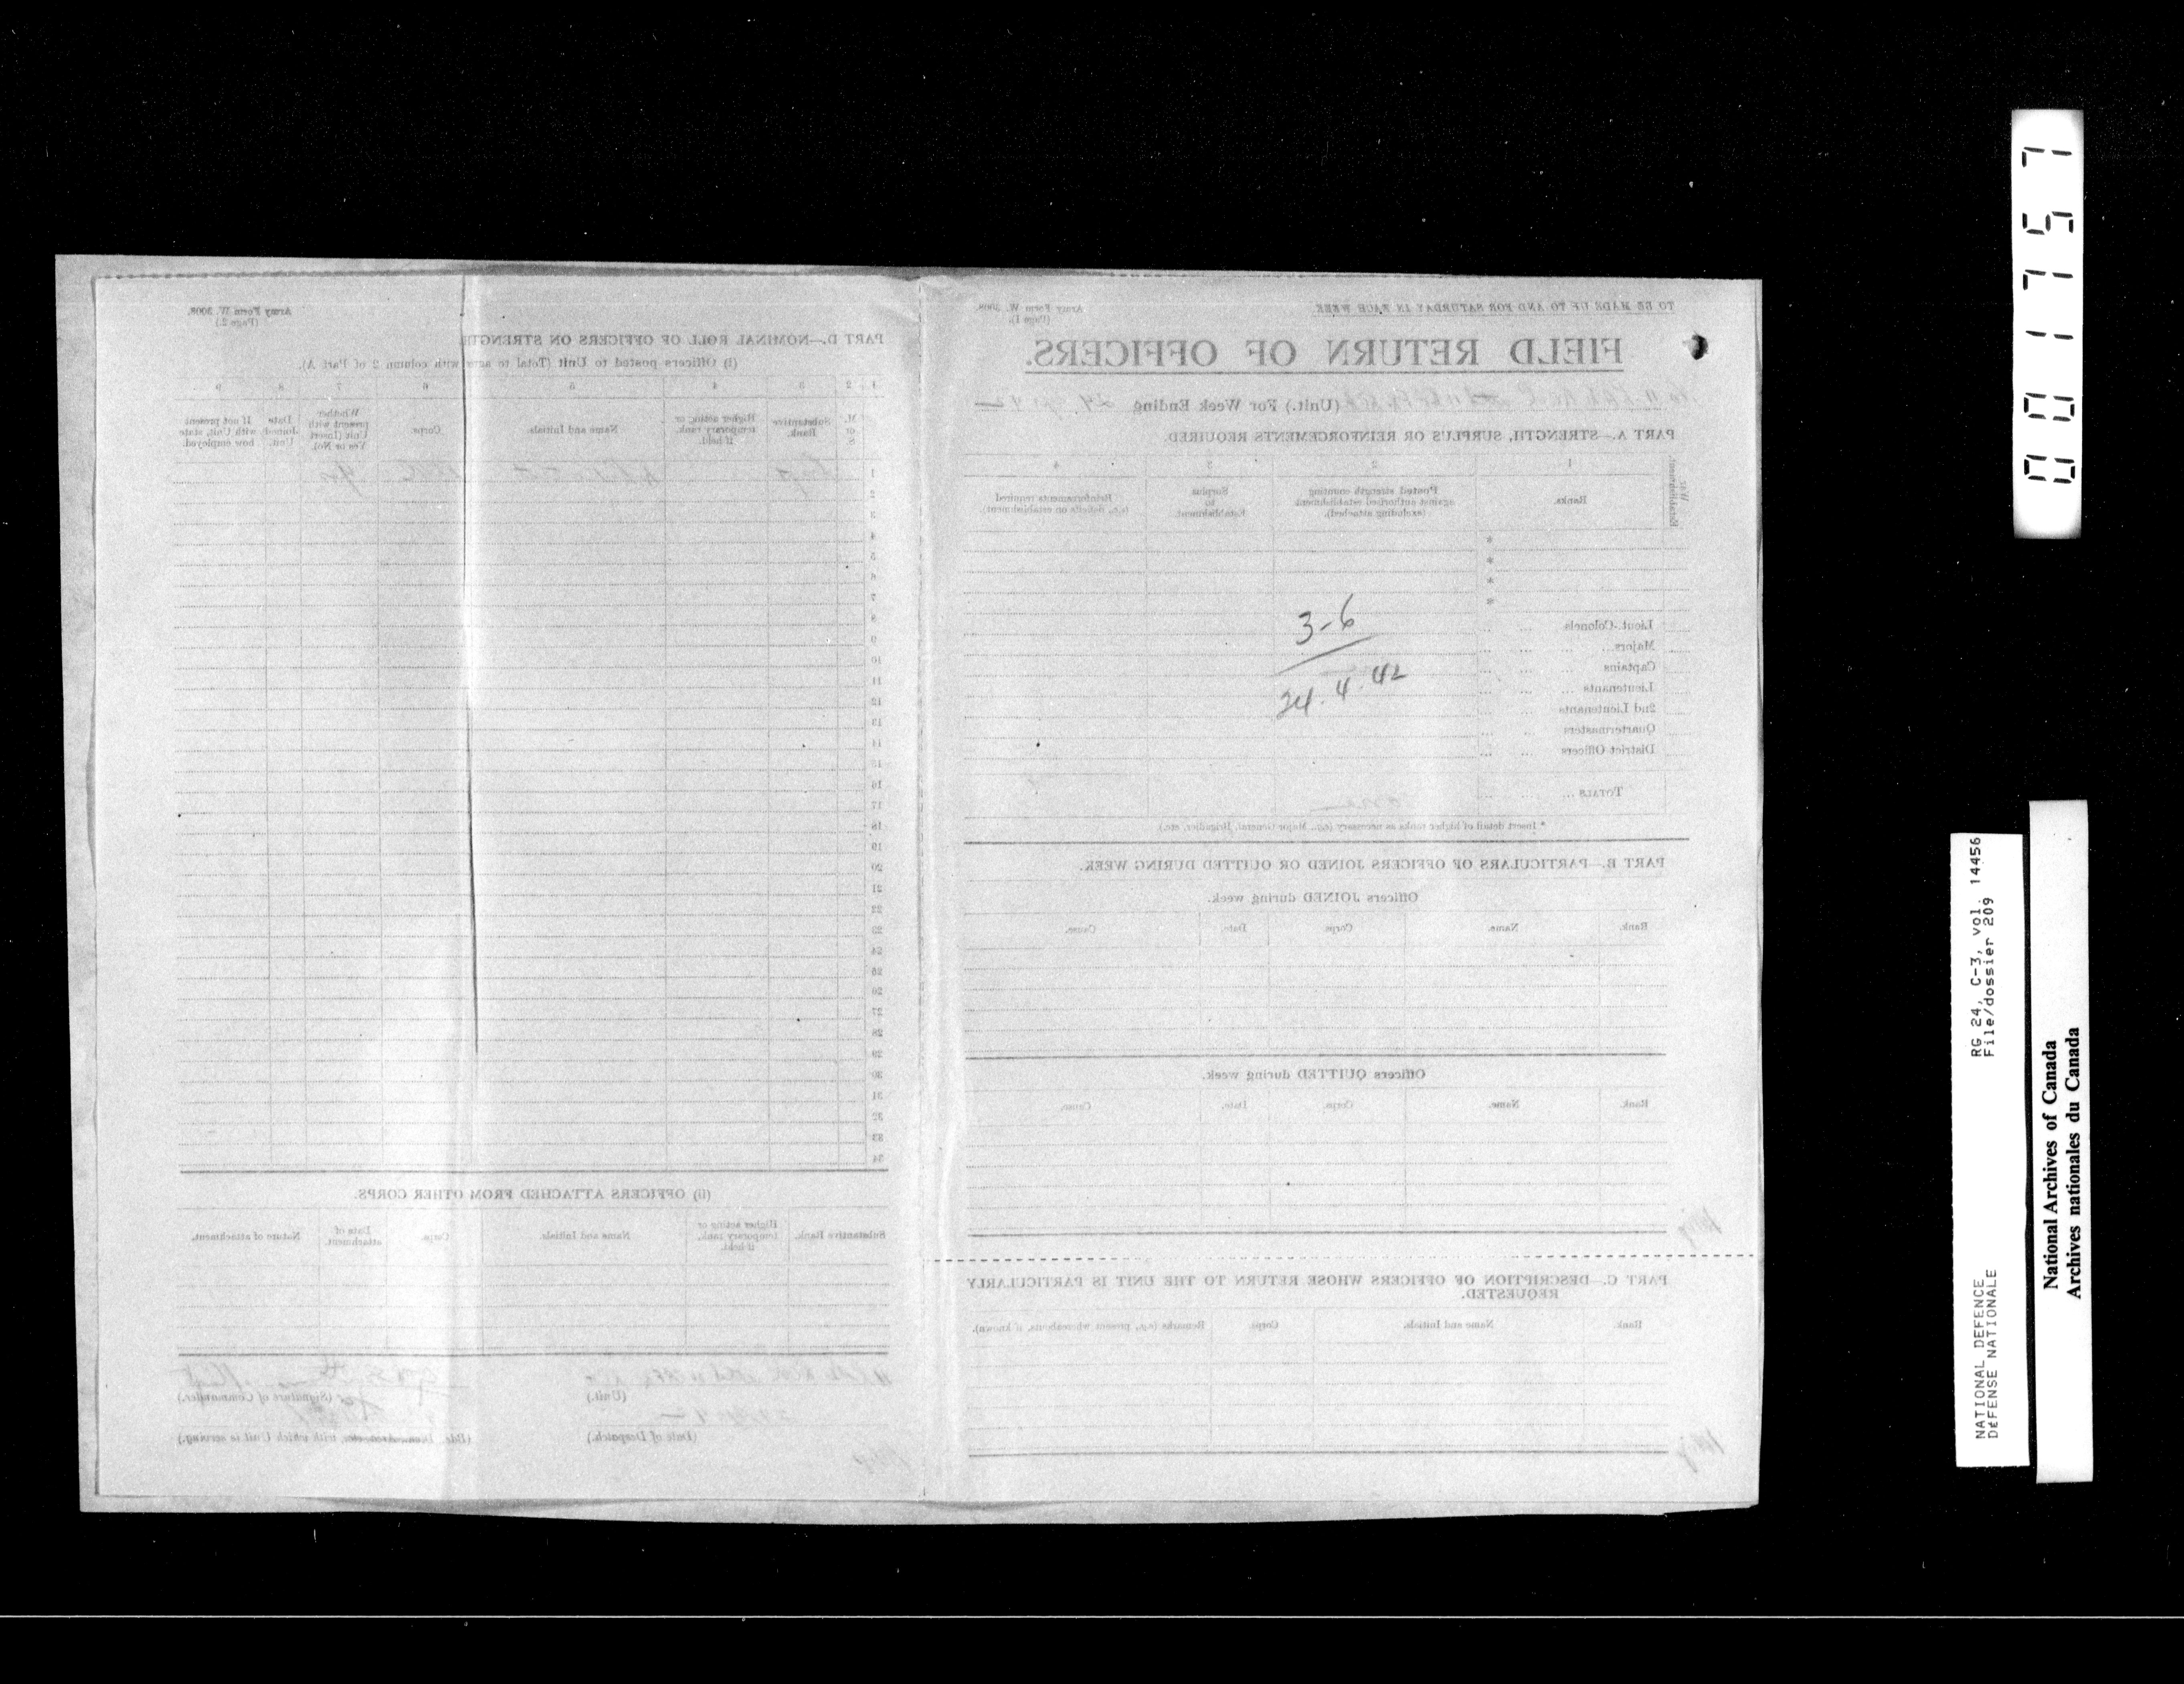 Army Form W. 3008.
(Page 2.)
PART D.—NOMINAL ROLL OF OFFICERS ON STRENGTH
(i) Officers posted to Unit (Total to agree with column 2 of Part A).
1 2 3 4 5 6 7 8 9
M. or S.
Substantive Rank.
Higher acting or temporary rank, if held.
Name and Initials.
Corps.
Whether present with Unit (Insert Yes or No).
Date Joined Unit.
If not present with Unit, state how employed.
1
2
3
4
5
6
7
8
9
10
11
12
13
14
15
16
17
18
19
20
21
22
23
24
25
26
27
28
29
30
31
32
33
34
(ii) OFFICERS ATTACHED FROM OTHER CORPS.
Substantive Rank.
Higher acting or temporary rank, if held.
Name and Initials.
Corps.
Date of attachment.
Nature of attachment.
(Unit.)
(Signature of Commander.)
(Date of Despatch.)
with which Unit is serving.)
TO BE MADE UP TO AND FOR SATURDAY IN EACH WEEK
Army Form W. 3008.
(Page 1).
FIELD RETURN OF OFFICERS.
(Unit.) For Week Ending 24
PART A.—STRENGTH, SURPLUS OR REINFORCEMENTS REQUIRED.
War Establishment.
1 2 3 4
Ranks.
Posted strength counting against authorized establishment (excluding attached).
Surplus to Establishment.
Reinforcements required (i.e., deficits on establishment).
*
*
*
*
Lieut.-Colonels
Majors
Captains
Lieutenants
2nd Lieutenants
Quartermasters
District Officers
TOTALS
3-6
24.4.42
* Insert detail of higher ranks as necessary (e.g., Major General, Brigadier, etc.)
PART B.—PARTICULARS OF OFFICERS JOINED OR QUITTED DURING WEEK.
Officers JOINED during week.
Rank. Name. Corps. Date. Cause.
Officers QUITTED during week.
Rank. Name. Corps. Date. Cause.
PART C.—DESCRIPTION OF OFFICERS WHOSE RETURN TO THE UNIT IS PARTICULARLY
REQUESTED.
Rank. Name and Initials. Corps. Remarks (e.g., present whereabouts, if known).
0001757
RG 24, C-3, vol. 14456
File/dossier 209
NATIONAL DEFENCE
DÉFENSE NATIONALE
National Archives of Canada
Archives nationales du Canada